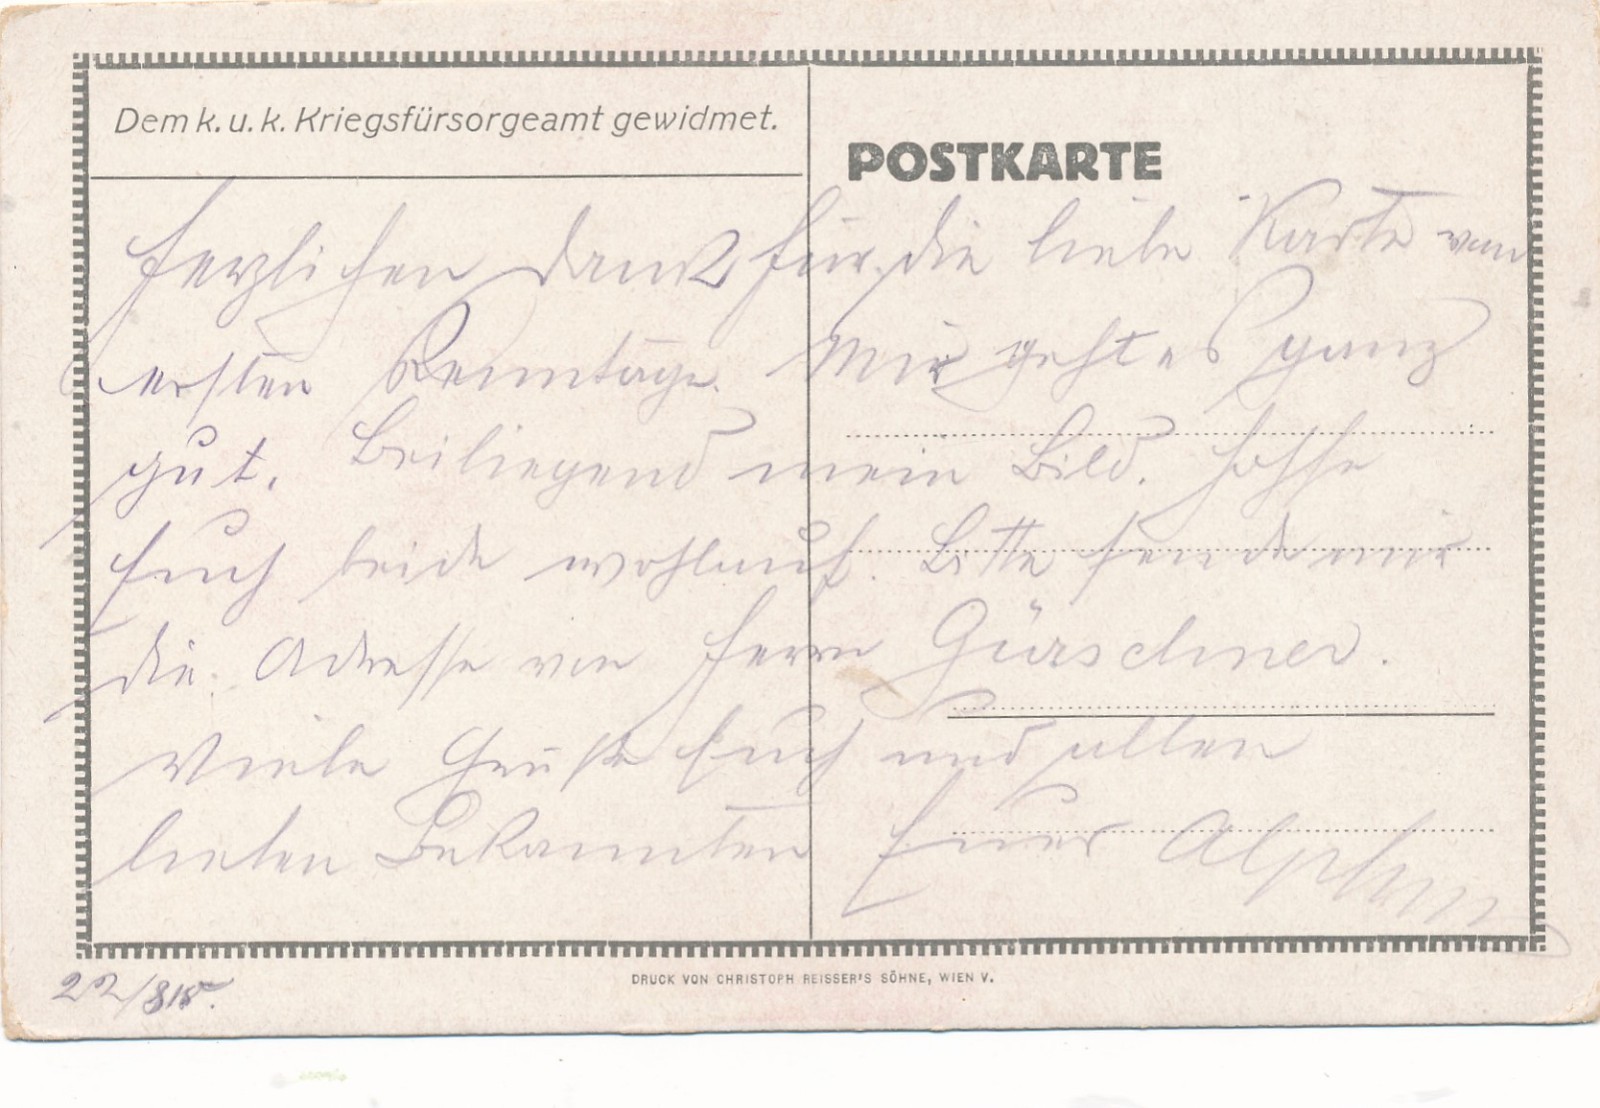 Dem k. u. k. Kriegsfürsorgeamt gewidmet.
POSTKARTE
Herzlichen Dank für die liebe Karte vom
ersten Renntage. Mir geht es ganz
gut. Beiliegend mein Bild. Hoffe
Euch beide wohlauf. Bitte sende mir
die Adresse von Herrn Gürschner.
Viele Grüße Euch und allen
lieben Bekannten Euer Alphons
22/815.
DRUCK VON CHRISTOPH REISSER'S SÖHNE, WIEN V.